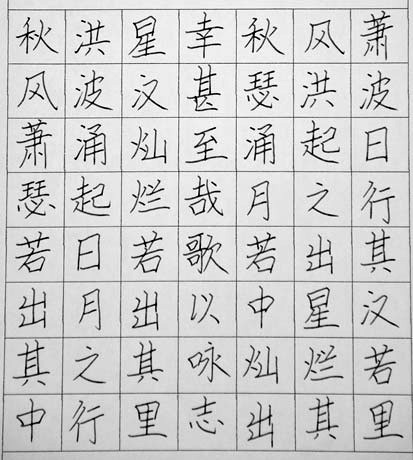 秋风萧瑟若出其中
洪波涌起日月之行
星汉灿烂若出其里
幸甚至哉歌以咏志
秋风萧
瑟洪波
涌起日
月之行
若出其
中星汉
灿烂若
出其里